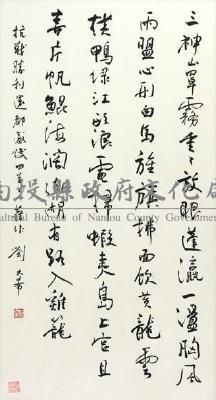 三神山罩霧重重放眼蓬瀛一盪胸風
雨盟心刑白馬旌旗拂面飲黃龍雲
橫鴨綠江頭浪電掃蝦夷島上宮且
喜片帆鯤海濶得有路入雞籠
抗戰勝利還都
作 劉太希
南投縣政府文化局
Cultural Bureau of Nantou County Government